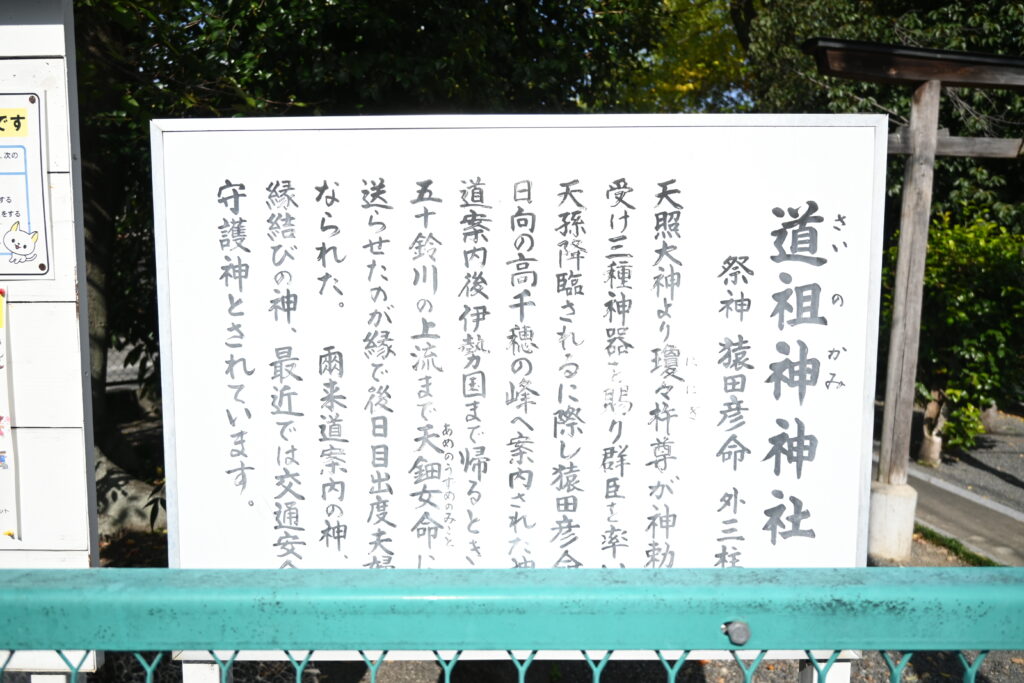 道祖神神社
さいのかみ
祭神 猿田彦命 外三柱
天照大神より瓊々杵尊が神勅
ににぎ
受け三種神器を賜り群臣を率い
天孫降臨されるに際し猿田彦命
日向の高千穂の峰へ案内された神
道案内後伊勢国まで帰るとき
五十鈴川の上流まで天鈿女命に
あめのうずめのみこと
送らせたのが縁で後日目出度夫婦
なられた。 爾来道案内の神、
縁結びの神、最近では交通安全
守護神とされています。
です
次の
する
をする